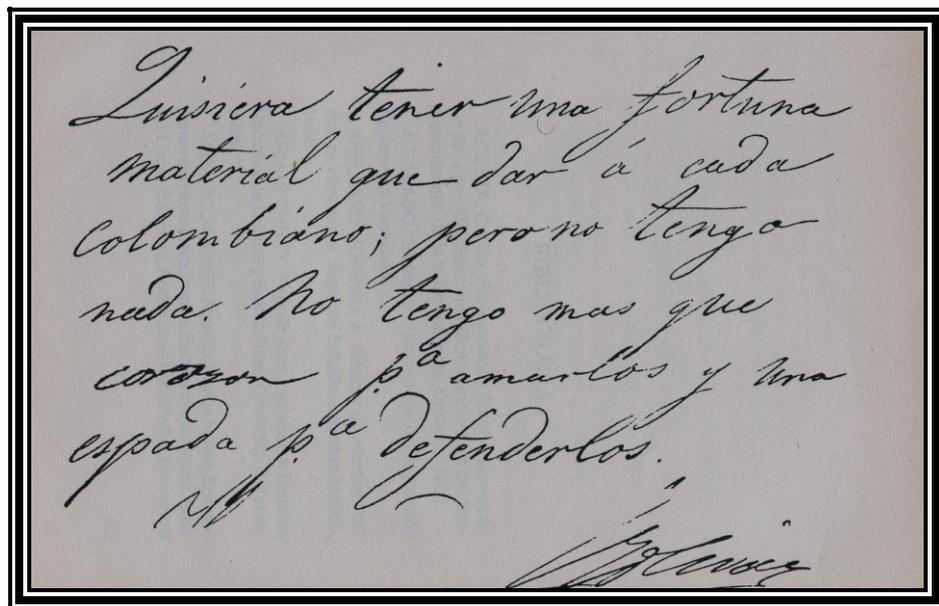 Quisiera tener una fortuna
material que dar á cada
colombiano; pero no tengo
nada. No tengo mas que
corazon p.a amarlos y una
espada p.a defenderlos.
Bolivar